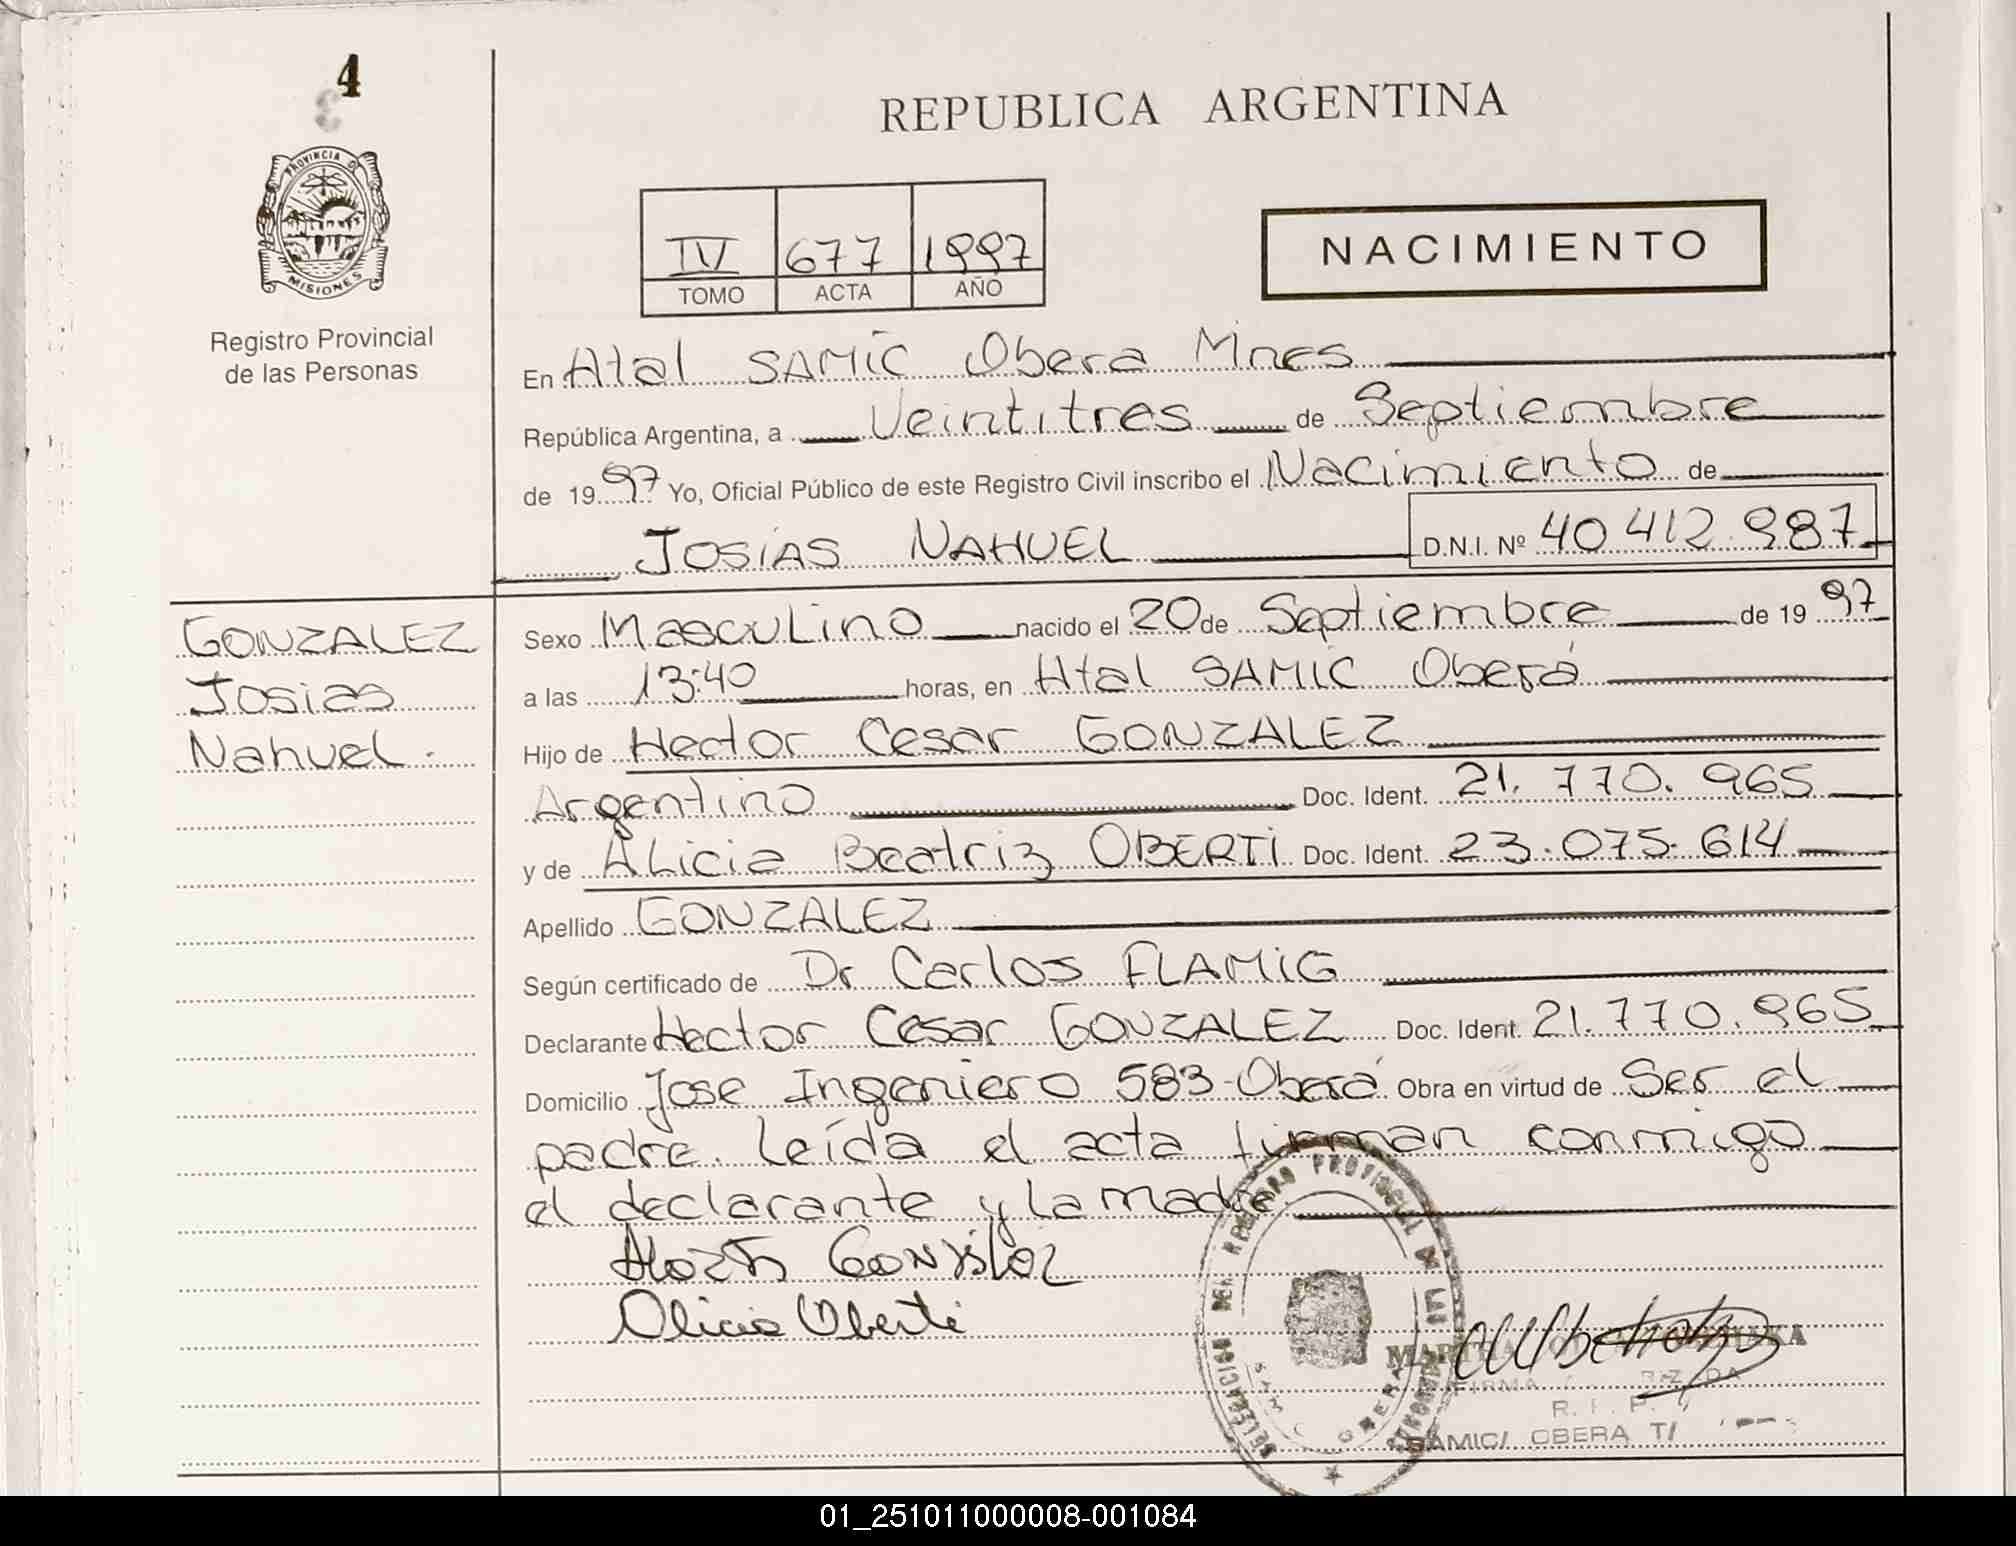 4
PROVINCIA D
MISIONES
Registro Provincial
de las Personas
REPUBLICA ARGENTINA
IV 677 1997
TOMO ACTA AÑO
NACIMIENTO
En Htal SAMIC Obera Mnes
República Argentina, a Veintitres de Septiembre
de 1997 Yo, Oficial Público de este Registro Civil inscribo el Nacimiento de
JOSIAS NAHUEL D.N.I. Nº 40 412 987
GONZALEZ
Josias
Nahuel.
Sexo Masculino nacido el 20 de Septiembre de 1997
a las 13:40 horas, en Htal SAMIC Oberá
Hijo de Hector Cesar GONZALEZ
Argentino Doc. Ident. 21. 770. 965
y de Alicia Beatriz OBERTI Doc. Ident. 23.075.614
Apellido GONZALEZ
Según certificado de Dr Carlos FLAMIG
Declarante Hector Cesar GONZALEZ Doc. Ident. 21.770.965
Domicilio Jose Ingeniero 583-Oberá Obra en virtud de Ser el
padre. Leída el acta firman conmigo
el declarante y la madre.
Alicia Oberti
DELEGACION DEL REGISTRO PROVINCIAL DE LAS PERSONAS
OBERA
FIRMA
R. P.
SAMIC/ OBERA
01_251011000008-001084